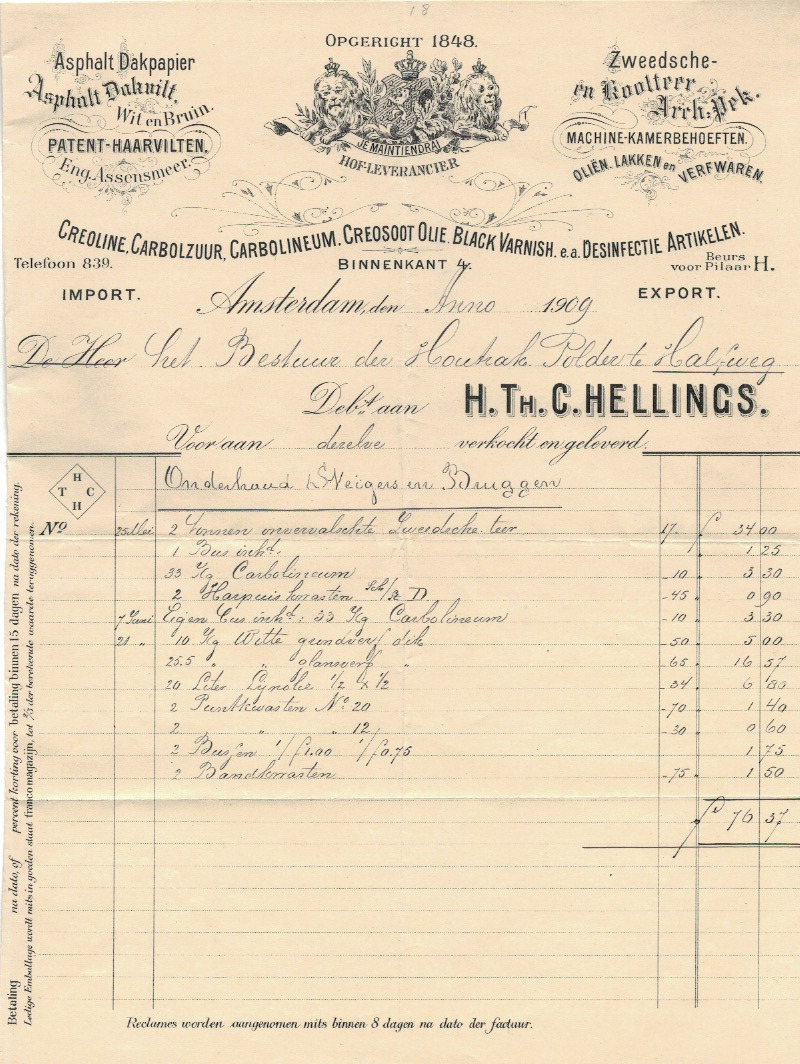 18
OPGERICHT 1848.
Asphalt Dakpapier
Asphalt Dakvilt,
Wit en Bruin.
PATENT-HAARVILTEN,
Eng. Assensmeer.
JE MAINTIENDRAI
HOF-LEVERANCIER
Zweedsche-
en Koolteer
Arch: Pek.
MACHINE-KAMERBEHOEFTEN.
OLIËN, LAKKEN en VERFWAREN.
CREOLINE, CARBOLZUUR, CARBOLINEUM, CREOSOOT OLIE. BLACK VARNISH. e.a. DESINFECTIE ARTIKELEN.
Telefoon 839. BINNENKANT 4. Beurs voor Pilaar H.
IMPORT. Amsterdam, den Anno 1909 EXPORT.
De Heer het Bestuur der Houtrak Polder te Halfweg
Debt. aan H. TH. C. HELLINGS.
Voor aan dezelve verkocht en geleverd.
H
T C
H
Onderhoud Steigers en Bruggen
No 25 Mei 2 Tonnen onvervalschte Zweedsche teer 17. " f 34 00
1 Bus inhd. " 1 25
33 Kg Carbolineum -10 " 3 30
2 Harpuiskwasten D. -45 " 0 90
7 Juni Eigen bus inhd: 33 Kg Carbolineum -10 " 3 30
21 " 10 Kg Witte grondverf dik -50 " 5 00
25.5 " " glansverf " -65 " 16 57
20 Liter Lijnolie 1/2 x 1/2 -34 " 6 80
2 Puntkwasten No 20 -70 " 1 40
2 " " 12 -30 " 0 60
2 Bussen 1/f1.00 1/f0.75 " 1 75
2 Bandkwasten -75 " 1 50
f 76 37
Betaling na dato, of percent korting voor betaling binnen 15 dagen na dato der rekening.
Ledige Emballage wordt mits in goeden staat franco magazijn, tot 2/3 der berekende waarde teruggenomen.
Reclames worden aangenomen mits binnen 8 dagen na dato der factuur.